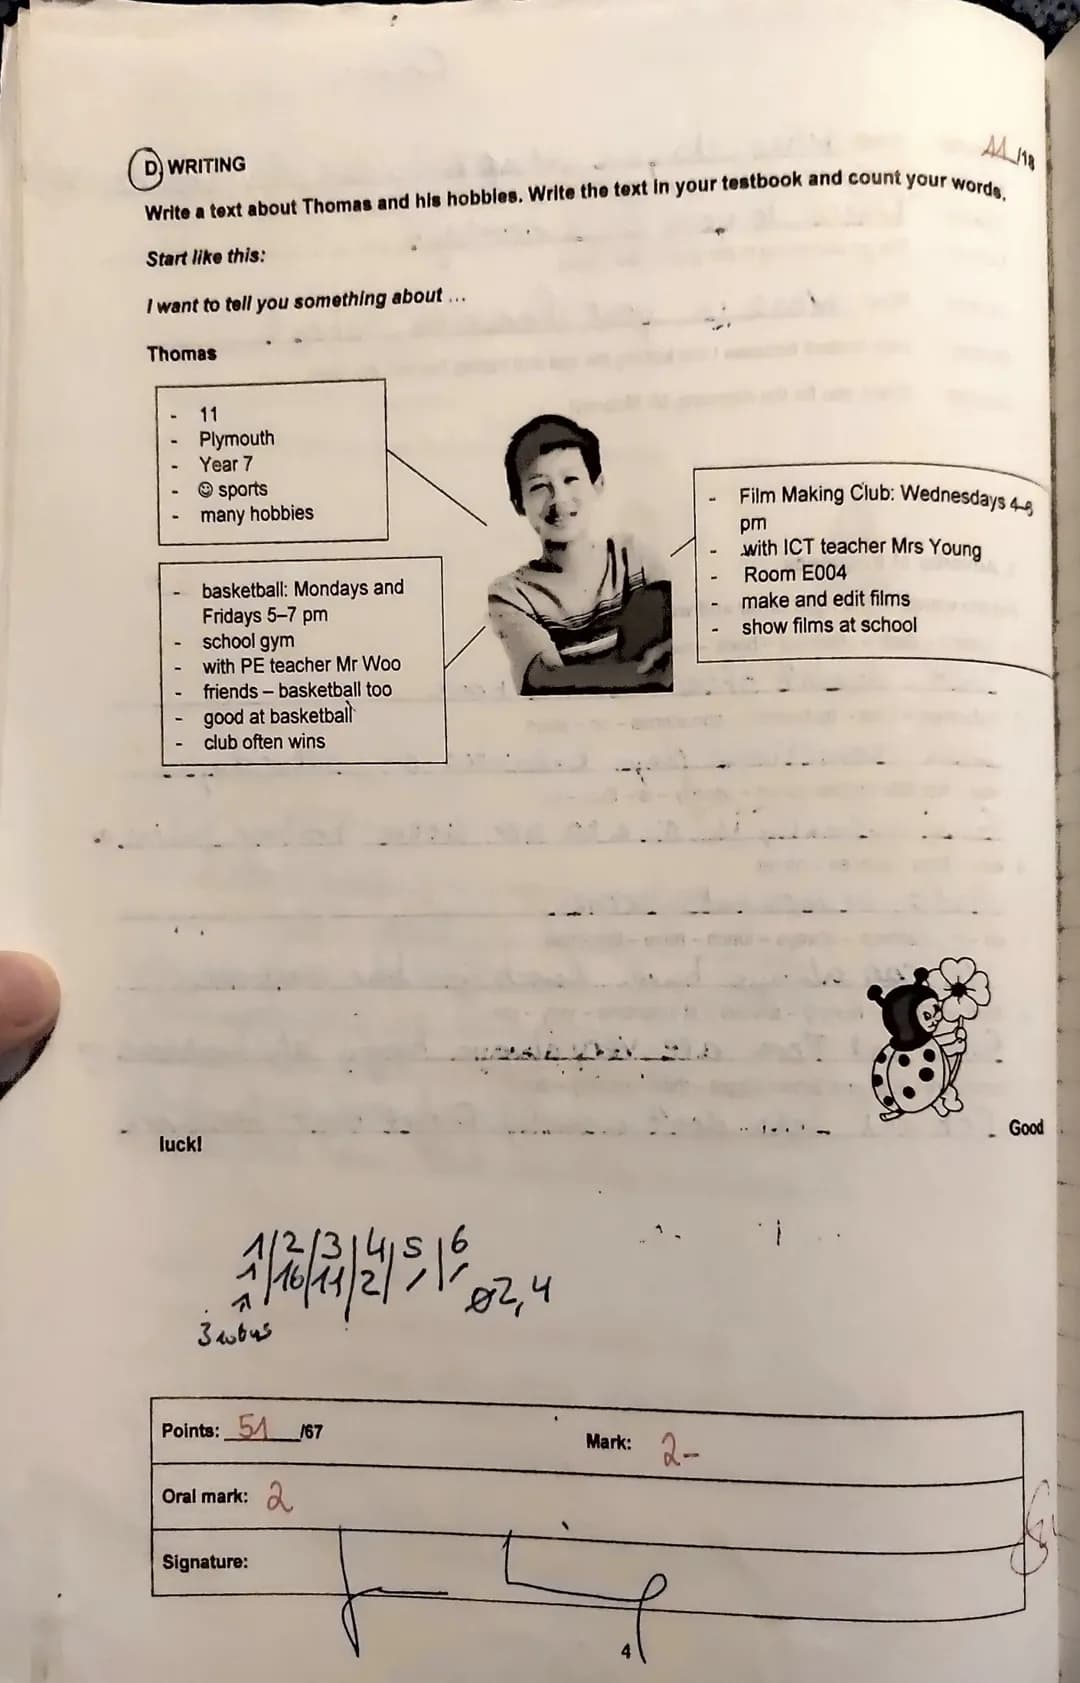 11/18
D) WRITING
Write a text about Thomas and his hobbies. Write the text in your testbook and count your words.
Start like this:
I want to tell you something about ...
Thomas
- 11
- Plymouth
- Year 7
- ☺ sports
- many hobbies
- basketball: Mondays and
Fridays 5–7 pm
- school gym
- with PE teacher Mr Woo
- friends – basketball too
- good at basketball
- club often wins
- Film Making Club: Wednesdays 4-6
pm
- with ICT teacher Mrs Young
- Room E004
- make and edit films
- show films at school
Good
luck!
1/2/3/4/5/6
1/16/11/2/-/-
ø2,4
Points: 51 /67
Mark: 2-
Oral mark: 2
Signature:
4